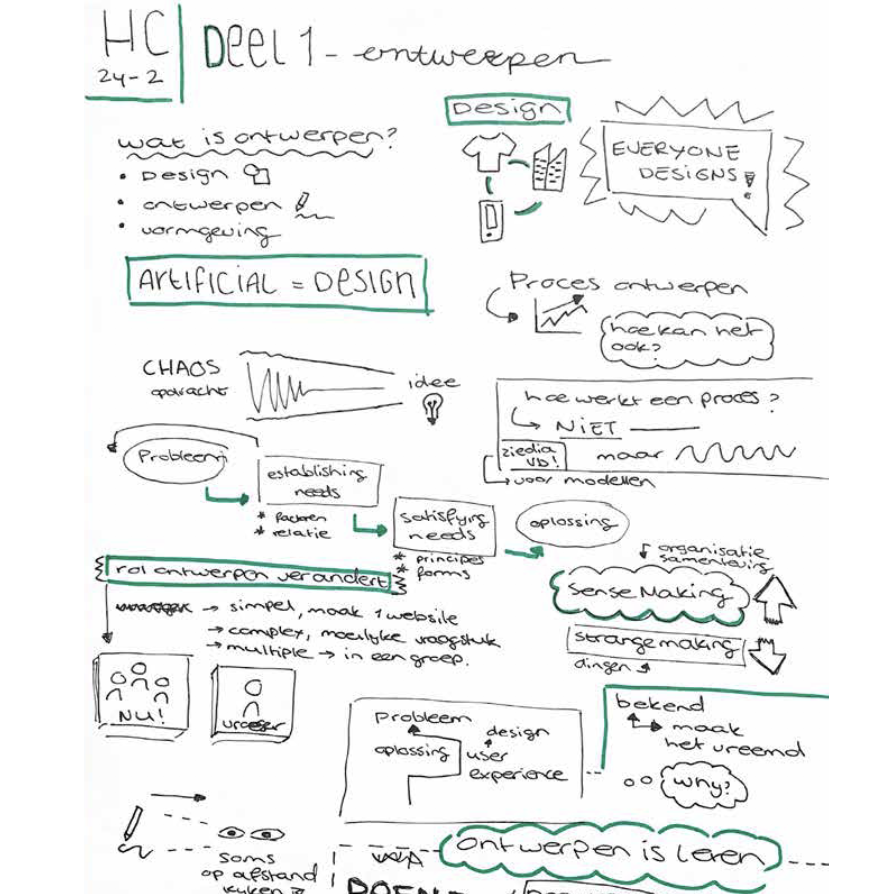 HC
24-2
Deel 1 - ontwerpen
wat is ontwerpen?
• Design
• ontwerpen
• vormgeving
Design
EVERYONE
DESIGNS!
ARTIFICIAL = DESIGN
Proces ontwerpen
hoe kan het
ook?
CHAOS
opdracht
idee
hoe werkt een proces?
→ NIET
ziedia
VB!
maar
→ voor modellen
Probleem
establishing
needs
* factoren
* relatie
satisfying
needs
* principes
* forms
oplossing
rol ontwerpen verandert
→ simpel, maak 1 website
→ complex, moeilijke vraagstuk
→ multiple → in een groep.
NU!
vroeger
organisatie
samenleving
Sense Making
strangemaking
dingen
Probleem
oplossing
design
user
experience
bekend
maak
het vreemd
why?
soms
op afstand
kijken
ontwerpen is leren